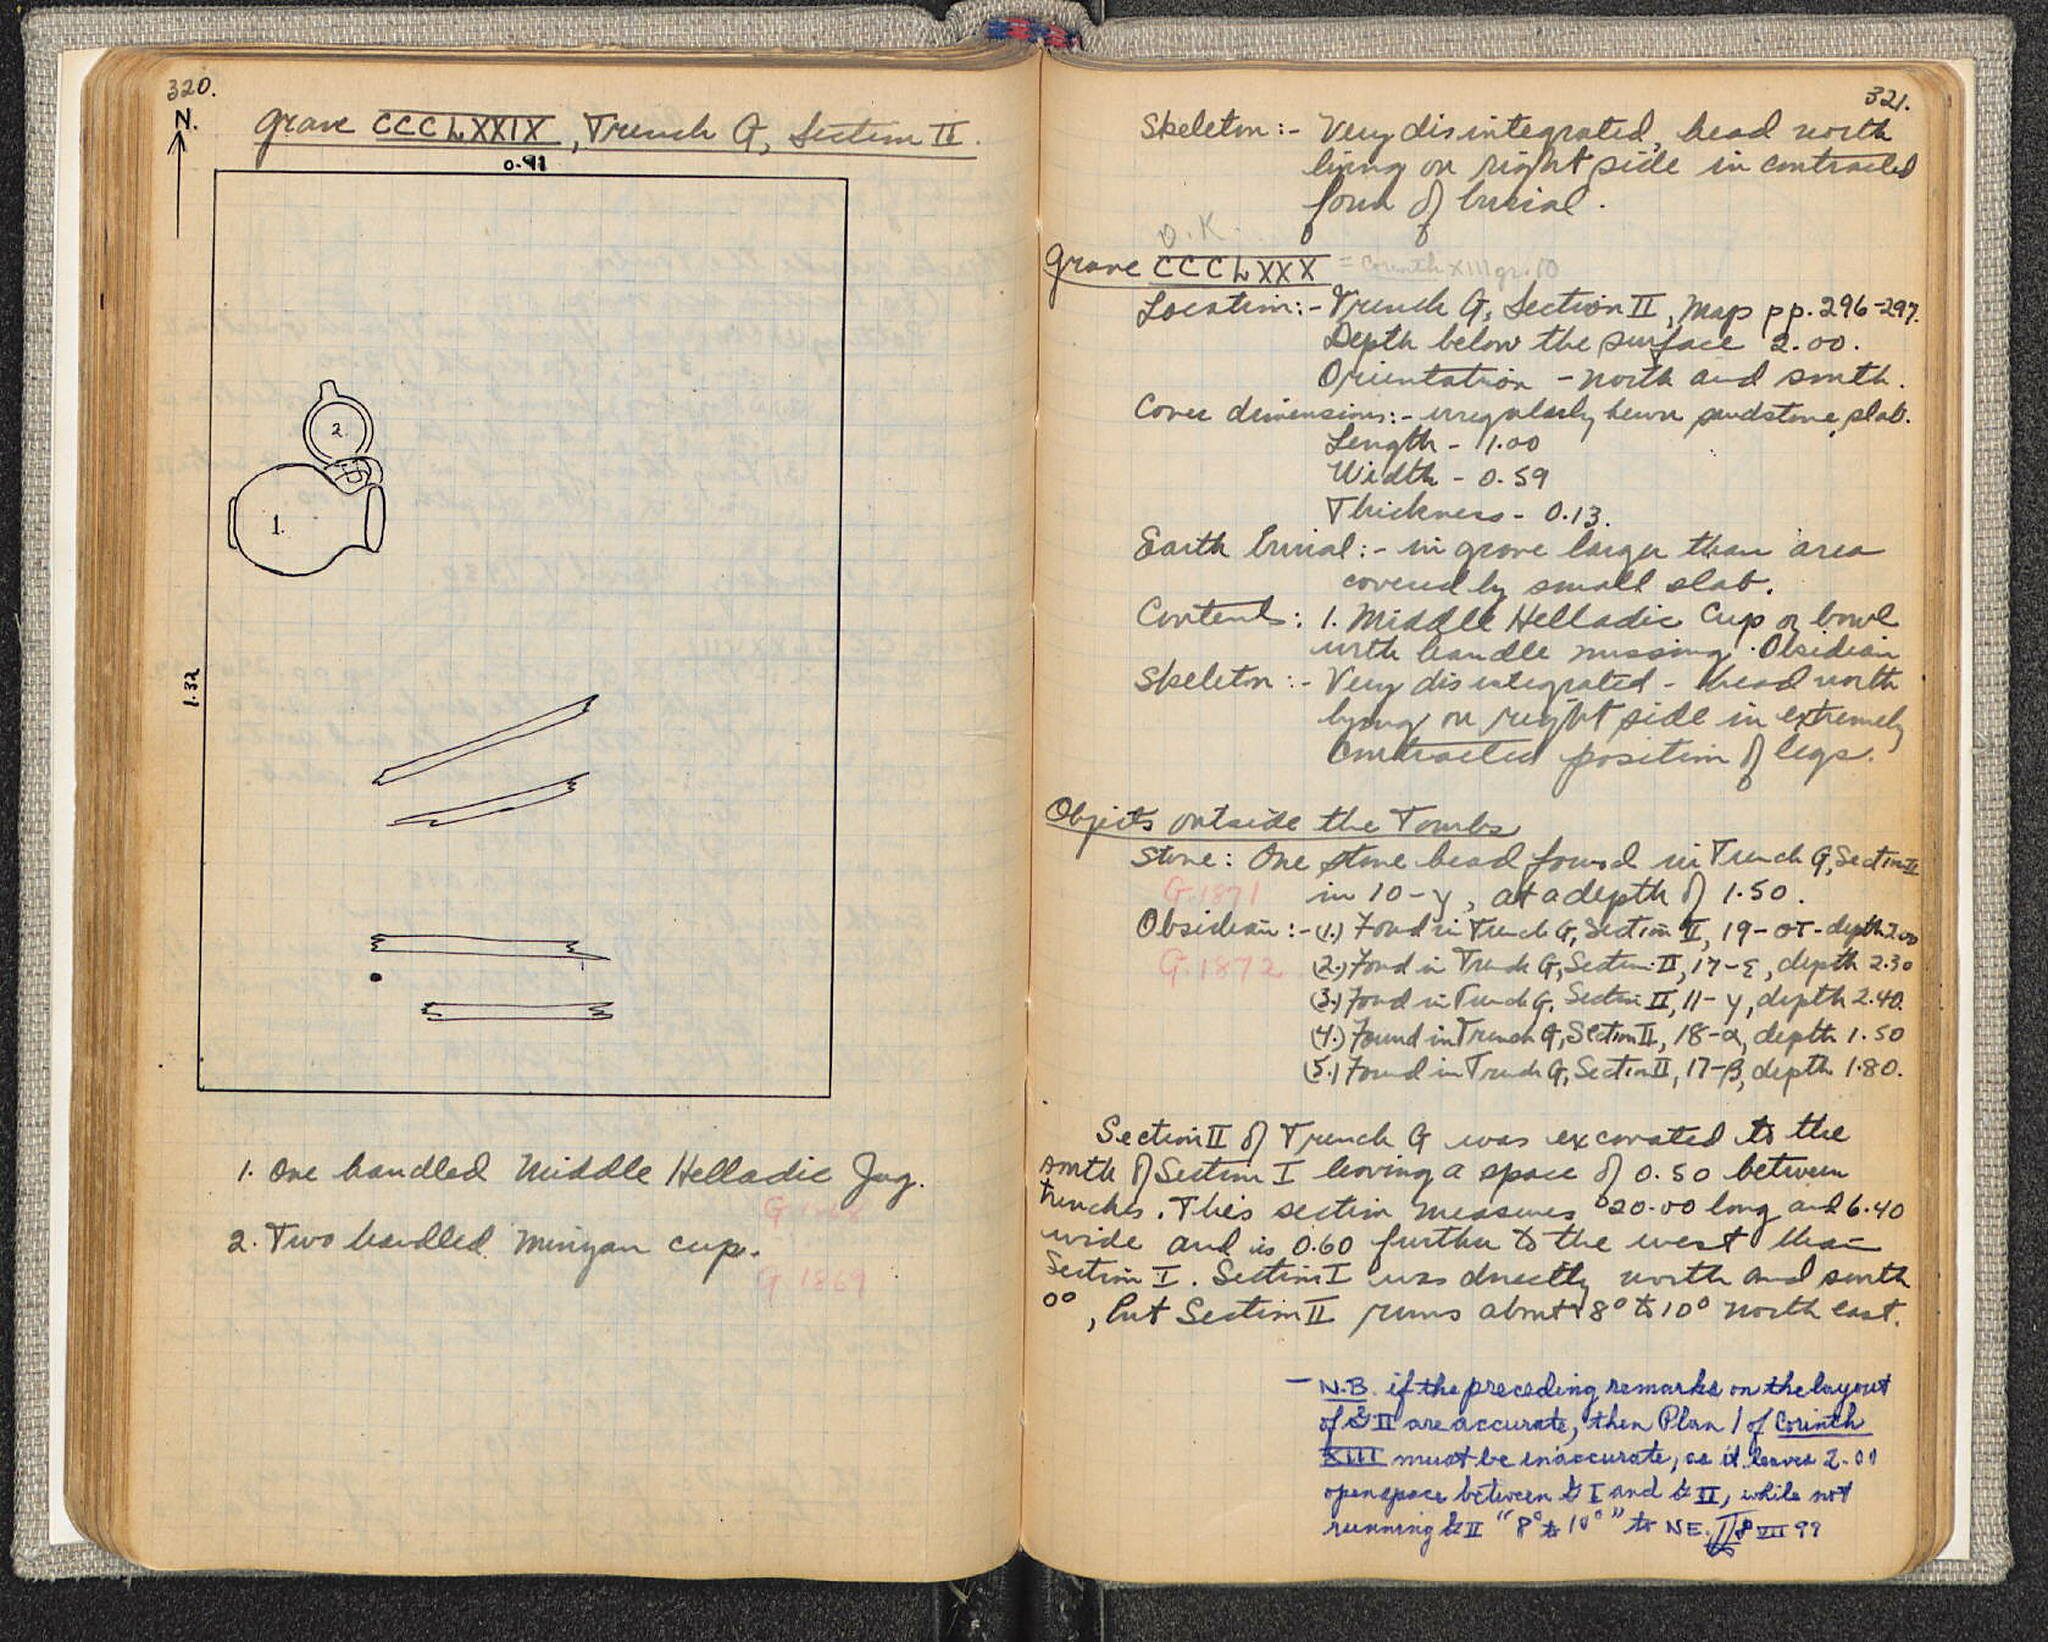 320.
N.
Grave CCCLXXIX, Trench G, Section II.
0.91
2
1.
1.32
1. One handled Middle Helladic Jug.
G 1868
2. Two handled Minyan cup.
G 1869
321.
Skeleton:- Very disintegrated, head north
lying on right side in contracted
form of burial.
O.K.
Grave CCCLXXX = Corinth XIII gr. 10
Location:- Trench G, Section II, Map pp. 296-297.
Depth below the surface 2.00.
Orientation - north and south.
Cover dimensions:- irregularly hewn sandstone slab.
Length - 1.00
Width - 0.59
Thickness - 0.13.
Earth burial:- in grave larger than area
covered by small slab.
Contents: 1. Middle Helladic Cup or bowl
with handle missing. Obsidian
Skeleton:- Very disintegrated - head north
lying on right side in extremely
contracted position of legs.
Objects outside the Tombs
Stone: One stone bead found in Trench G, Section II
G.1871 in 10-γ, at a depth of 1.50.
Obsidian:- (1.) Found in Trench G, Section II, 19-στ- depth 2.00
G.1872 (2.) Found in Trench G, Section II, 17-ε, depth 2.30
(3.) Found in Trench G, Section II, 11-γ, depth 2.40.
(4.) Found in Trench G, Section II, 18-α, depth 1.50
(5.) Found in Trench G, Section II, 17-β, depth 1.80.
Section II of Trench G was excavated to the
south of Section I leaving a space of 0.50 between
trenches. This section measures 20.00 long and 6.40
wide and is 0.60 further to the west than
Section I. Section I was directly north and south
0°, but Section II runs about 8° to 10° north east.
- N.B. if the preceding remarks on the layout
of G II are accurate, then Plan 1 of Corinth
XIII must be inaccurate, as it leaves 2.00
open space between G I and G II, while not
running G II "8° to 10°" to NE. 8 VII 99